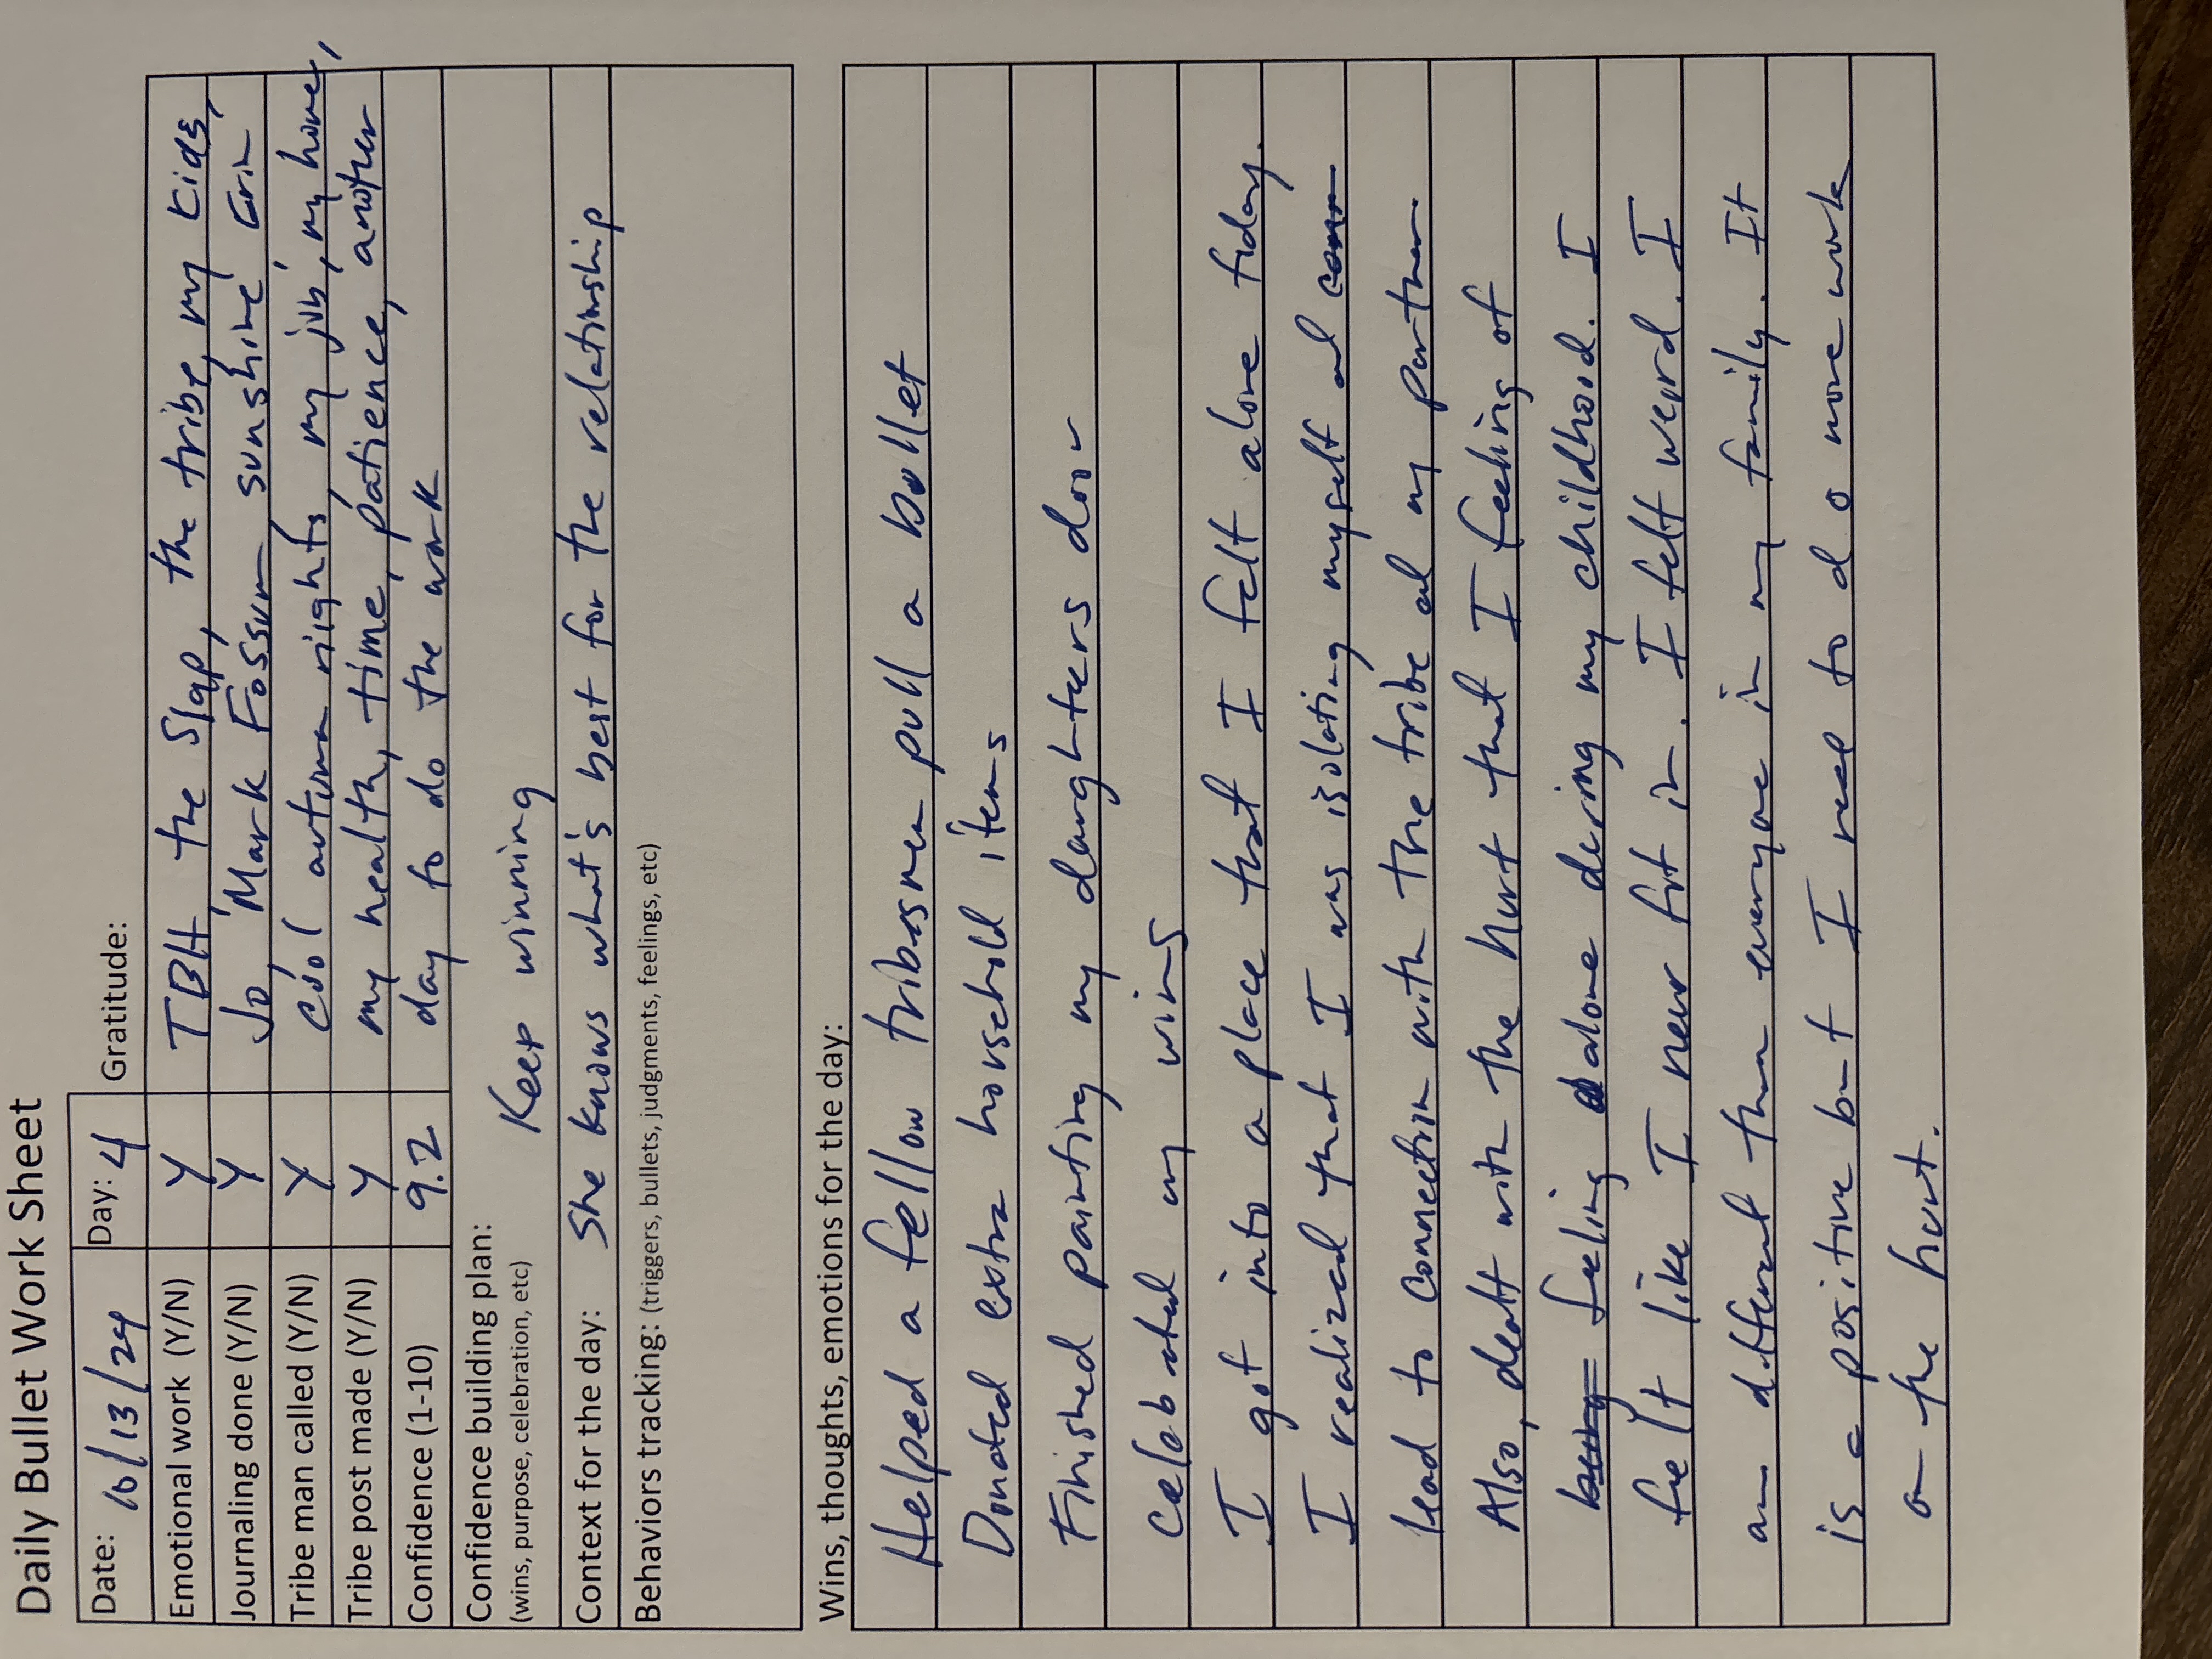 Daily Bullet Work Sheet
Date: 10/13/24 Day: 4 Gratitude:
Emotional work (Y/N) Y TBH, the Slap, the tribe, my kids,
Journaling done (Y/N) Y Jo, Mark Fossum sunshine Erin
Tribe man called (Y/N) Y cool autumn nights, my job, my home,
Tribe post made (Y/N) Y my health, time, patience, another
Confidence (1-10) 9.2 day to do the work
Confidence building plan: Keep winning
(wins, purpose, celebration, etc)
Context for the day: She knows what's best for the relationship
Behaviors tracking: (triggers, bullets, judgments, feelings, etc)
Wins, thoughts, emotions for the day:
Helped a fellow tribesmen pull a bullet
Donated extra household items
Finished painting my daughters door
Celebrated my wins
I got into a place that I felt alone today.
I realized that I was isolating myself and
lead to connection with the tribe and my partner
Also, dealt with the hurt that I feeling of
feeling alone during my childhood. I
felt like I never fit in. I felt weird. I
am different than everyone in my family. It
is a positive but I need to do more work
on the hurt.